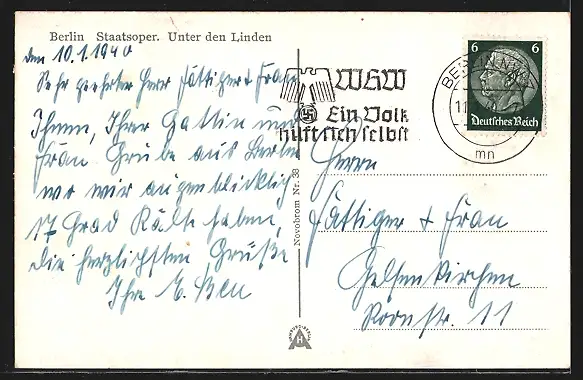 Berlin Staatsoper. Unter den Linden
den 10.1.1940
Sehr geehrter Herr Fättiger & Frau
Ihnen, Ihrer Gattin und
Frau. Grube aus Berlin
wo wir augenblicklich
17 Grad Kälte haben,
die herzlichsten Grüße
Ihr E.
WHW
Ein Volk
hilft sich selbst
BERLIN
11
mn
6 6
Deutsches Reich
Novobrom Nr. 38
Herrn
Fättiger & Frau
Gelsenkirchen
Roonstr. 11